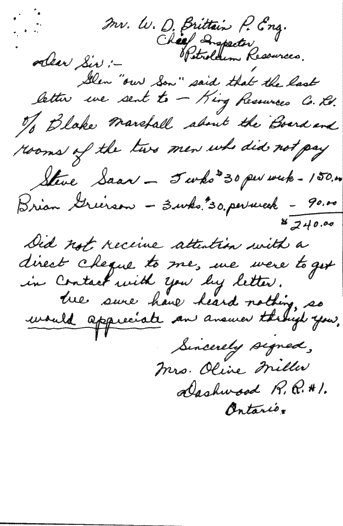 Mr. W. D. Brittain P. Eng.
Chief Inspector
Petroleum Resources.
Dear Sir :-
Glen "our Son" said that the last
letter we sent to - King Resources Co. Lt.
% Blake Marshall about the Board and
rooms of the two men who did not pay
Steve Saar - 5 wks $30 per week - 150.00
Brian Grierson - 3 wks. $30. per week - 90.00
$240.00
Did not receive attention with a
direct cheque to me, we were to get
in contact with you by letter.
We sure have heard nothing, so
would appreciate an answer through you.
Sincerely signed,
Mrs. Olive Miller
Dashwood R. R. #1.
Ontario.